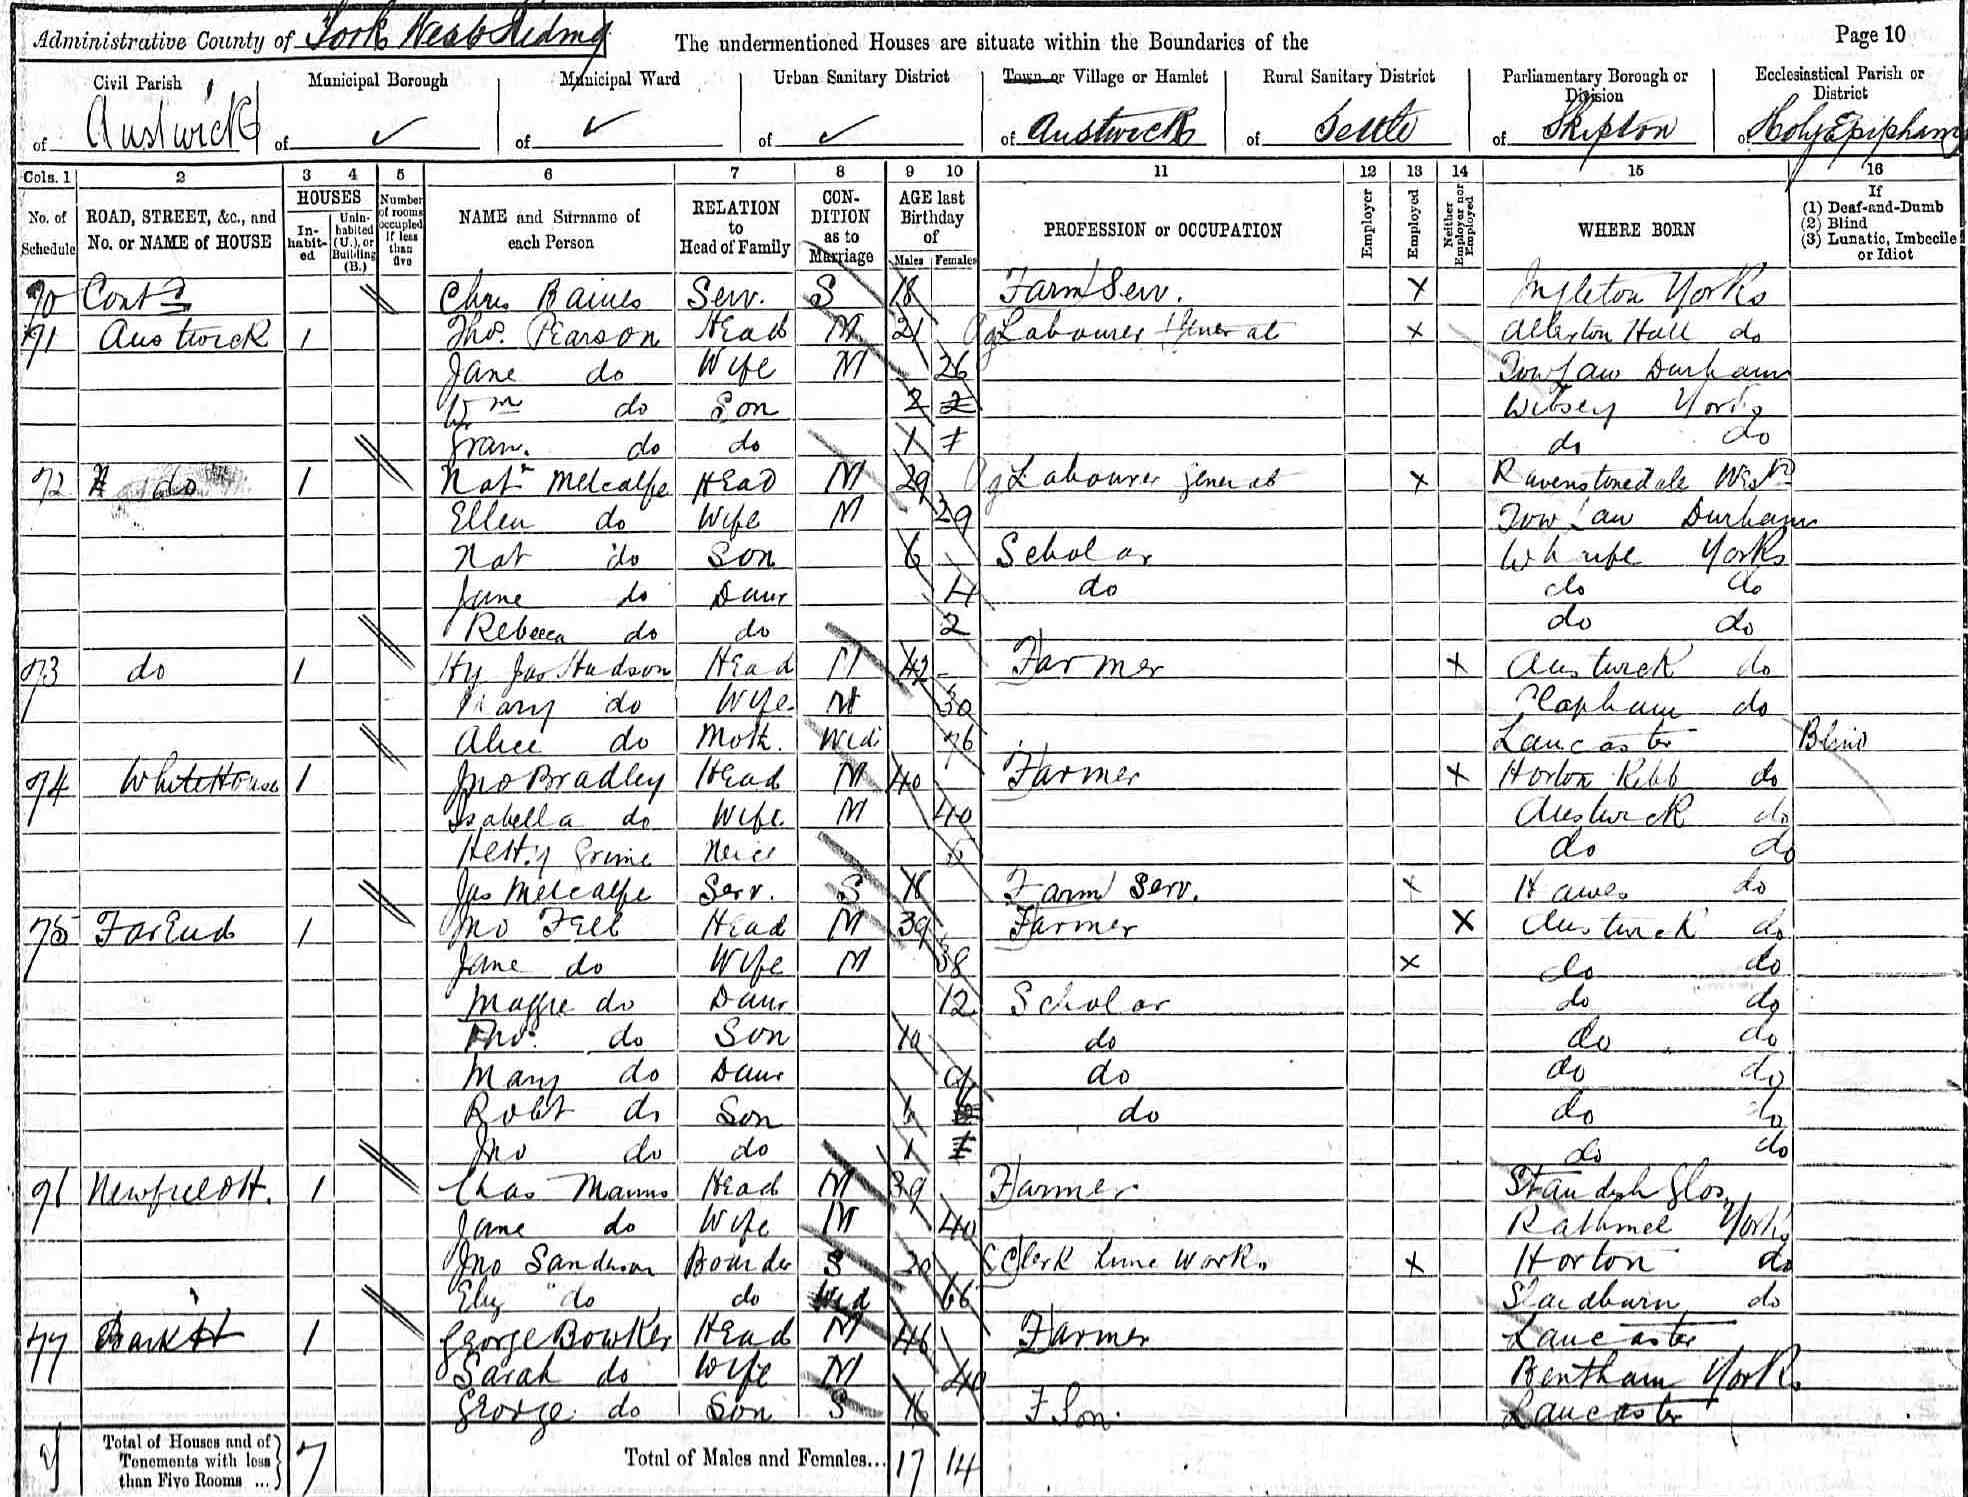 Administrative County of York West Riding The undermentioned Houses are situate within the Boundaries of the Page 10
Civil Parish Municipal Borough Municipal Ward Urban Sanitary District Town or Village or Hamlet Rural Sanitary District Parliamentary Borough or Division Ecclesiastical Parish or District
of Austwick of ✓ of ✓ of ✓ of Austwick of Settle of Skipton of Holy Epiphany
Cols. 1 2 3 4 5 6 7 8 9 10 11 12 13 14 15 16
No. of Schedule ROAD, STREET, &c., and No. or NAME of HOUSE HOUSES Inhabited Uninhabited (U.), or Building (B.) Number of rooms occupied if less than five NAME and Surname of each Person RELATION to Head of Family CONDITION as to Marriage AGE last Birthday of Males Females PROFESSION or OCCUPATION Employer Employed Neither Employer nor Employed WHERE BORN If (1) Deaf-and-Dumb (2) Blind (3) Lunatic, Imbecile or Idiot
70 Contd Chris Baines Serv. S 18 Farm Serv. X Ingleton Yorks
71 Austwick 1 Thos. Pearson Head M 21 Ag Labourer General X Hall do
Jane do Wife M 26 Tow Law Durham
Wm do Son 2 2 Wibsey Yorks
Fran. do do 1 1 do do
72 do 1 Natn Metcalfe Head M 29 Ag Labourer General X Ravenstonedale Westd
Ellen do Wife M 29 Tow Law Durham
Nat do Son 6 Scholar Wharfe Yorks
Jane do Daur 4 do do do
Rebecca do do 2 do do
73 do 1 Hy Jas Hudson Head M 42 Farmer X Austwick do
Mary do Wife M 30 Clapham do
Alice do Moth. Wid 76 Lancaster Blind
74 White House 1 Jno Bradley Head M 40 Farmer X Horton Ribb do
Isabella do Wife M 40 Austwick do
Hetty Grime Neice do do
Jas Metcalfe Serv. S 18 Farm Serv. X Hawes do
75 Far End 1 Jno Fell Head M 39 Farmer X Austwick do
Jane do Wife M 38 X do do
Maggie do Daur 12 Scholar do do
Tho. do Son 10 do do do
Mary do Daur 9 do do do
Robt do Son 6 do do do
Jno do do 1 1 do do
76 Newfield H. 1 Chas Manns Head M 39 Farmer Standish Glos
Jane do Wife M 40 Rathmel Yorks
Jno Sanderson Boarder S 20 Clerk Lime Works X Horton do
Eliz do do Wid 66 Slaidburn do
77 Bark H 1 George Bowker Head M 46 Farmer Lancaster
Sarah do Wife M 40 Bentham Yorks
George do Son S 16 F Son. Lancaster
Total of Houses and of Tenements with less than Five Rooms ... 7 Total of Males and Females... 17 14